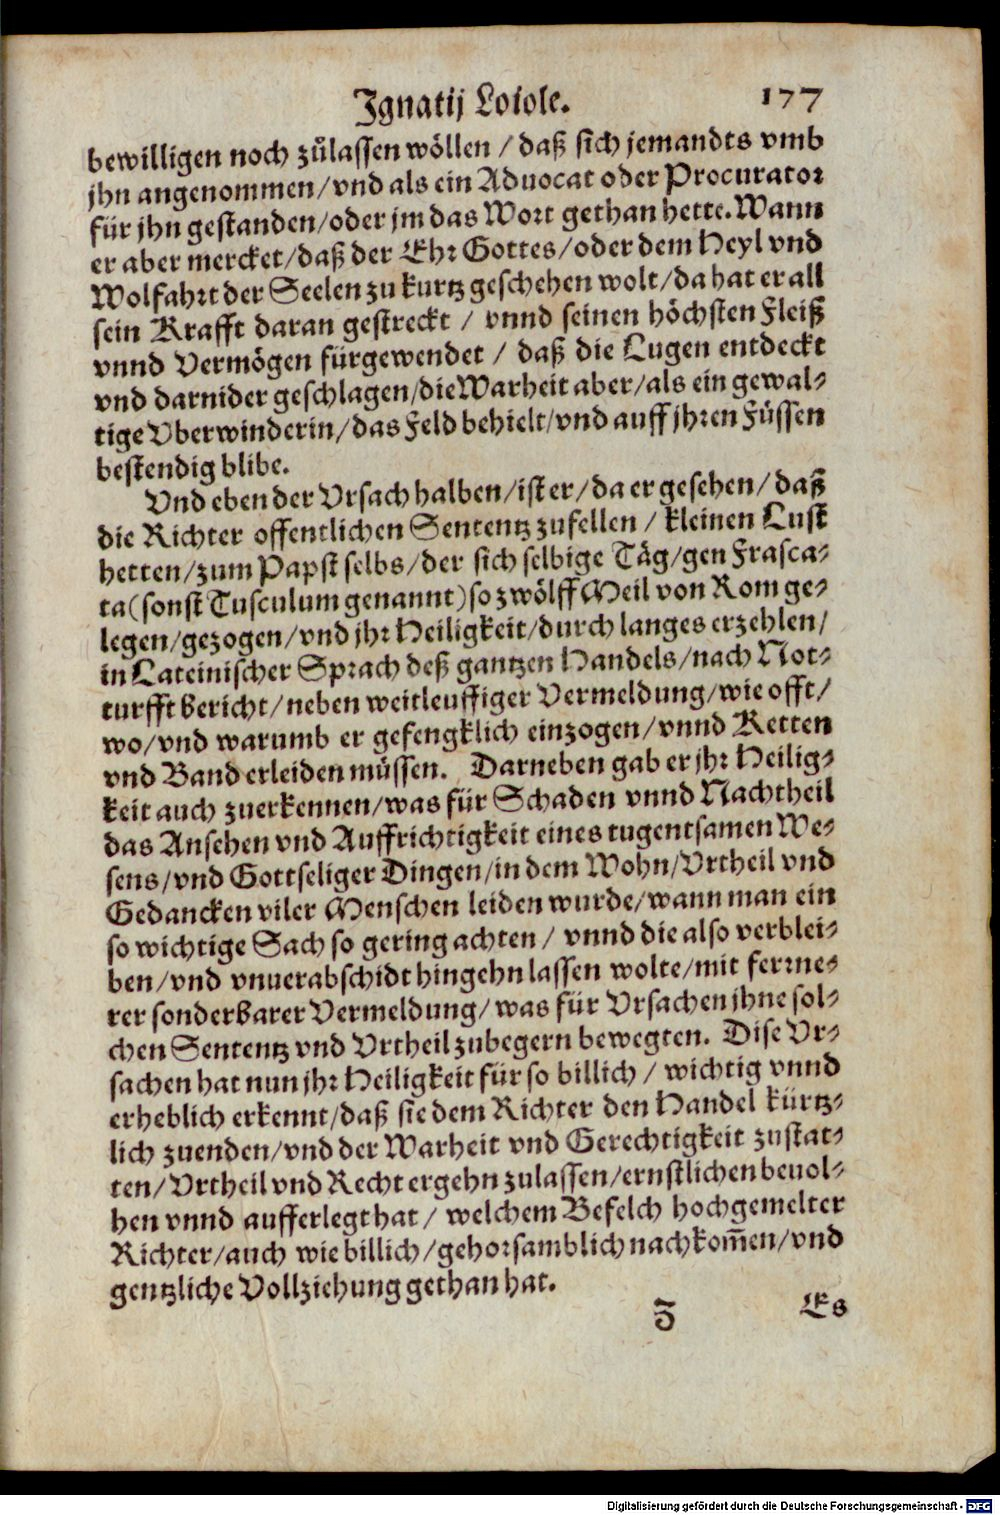 Ignatij Loiole. 177
bewilligen noch zůlassen wöllen / daß sich jemandts vmb
jhn angenommen / vnd als ein Aduocat oder Procurator
für jhn gestanden / oder jm das Wort gethan hette. Wann
er aber mercket / daß der Ehr Gottes / oder dem Heyl vnd
Wolfahrt der Seelen zu kurtz geschehen wolt / da hat er all
sein Krafft daran gestreckt / vnnd seinen höchsten Fleiß
vnnd Vermögen fürgewendet / daß die Lugen entdeckt
vnd darnider geschlagen / die Warheit aber / als ein gewal-
tige Vberwinderin / das Feld behielt / vnd auff jhren Füssen
bestendig blibe.
Vnd eben der Vrsach halben / ist er / da er gesehen / daß
die Richter offentlichen Sententz zufellen / kleinen Lust
hetten / zum Papst selbs / der sich selbige Täg / gen Frasca-
ta (sonst Tusculum genannt) so zwölff Meil von Rom ge-
legen / gezogen / vnd jhr Heiligkeit / durch langes erzehlen /
in Lateinischer Sprach deß gantzen Handels / nach Not-
turfft bericht / neben weitleuffiger Vermeldung / wie offt /
wo / vnd warumb er gefengklich einzogen / vnnd Ketten
vnd Band erleiden müssen. Darneben gab er jhr Heilig-
keit auch zuerkennen / was für Schaden vnnd Nachtheil
das Ansehen vnd Auffrichtigkeit eines tugentsamen We-
sens / vnd Gottseliger Dingen / in dem Wohn / Vrtheil vnd
Gedancken viler Menschen leiden wurde / wann man ein
so wichtige Sach so gering achten / vnnd die also verblei-
ben / vnd vnuerabschidt hingehn lassen wolte / mit ferrne-
rer sonderbarer Vermeldung / was für Vrsachen jhne sol-
chen Sententz vnd Vrtheil zubegern bewegten. Dise Vr-
sachen hat nun jhr Heiligkeit für so billich / wichtig vnnd
erheblich erkennt / daß sie dem Richter den Handel kürtz-
lich zuenden / vnd der Warheit vnd Gerechtigkeit zustat-
ten / Vrtheil vnd Recht ergehn zulassen / ernstlichen beuol-
hen vnnd aufferlegt hat / welchem Befelch hochgemelter
Richter / auch wie billich / gehorsamblich nachkom̄en / vnd
gentzliche Vollziehung gethan hat.
Z Es
Digitalisierung gefördert durch die Deutsche Forschungsgemeinschaft - DFG